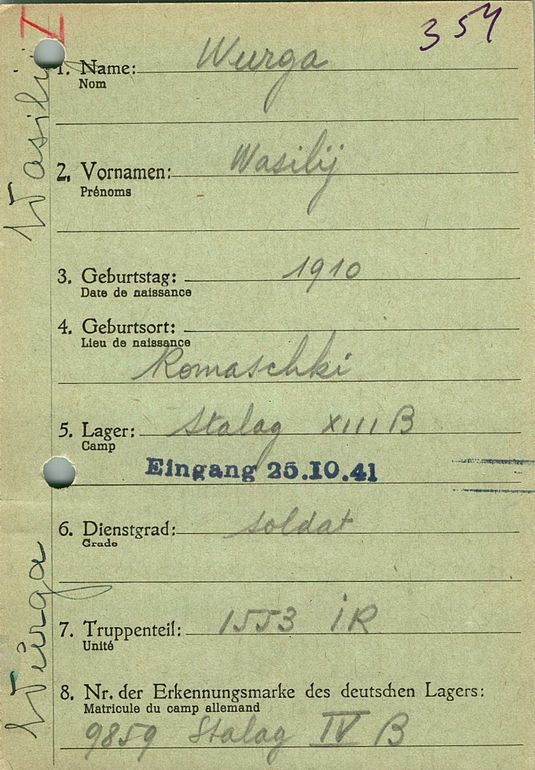 I
354
1. Name: Wurga
Nom
2. Vornamen: Wasilij
Prénoms
3. Geburtstag: 1910
Date de naissance
4. Geburtsort:
Lieu de naissance
Romaschki
5. Lager: Stalag XIII B
Camp
Eingang 25.10.41
6. Dienstgrad: Soldat
Grade
7. Truppenteil: 1553 IR
Unité
8. Nr. der Erkennungsmarke des deutschen Lagers:
Matricule du camp allemand
9859 Stalag IV B
Wurga
Wasilij